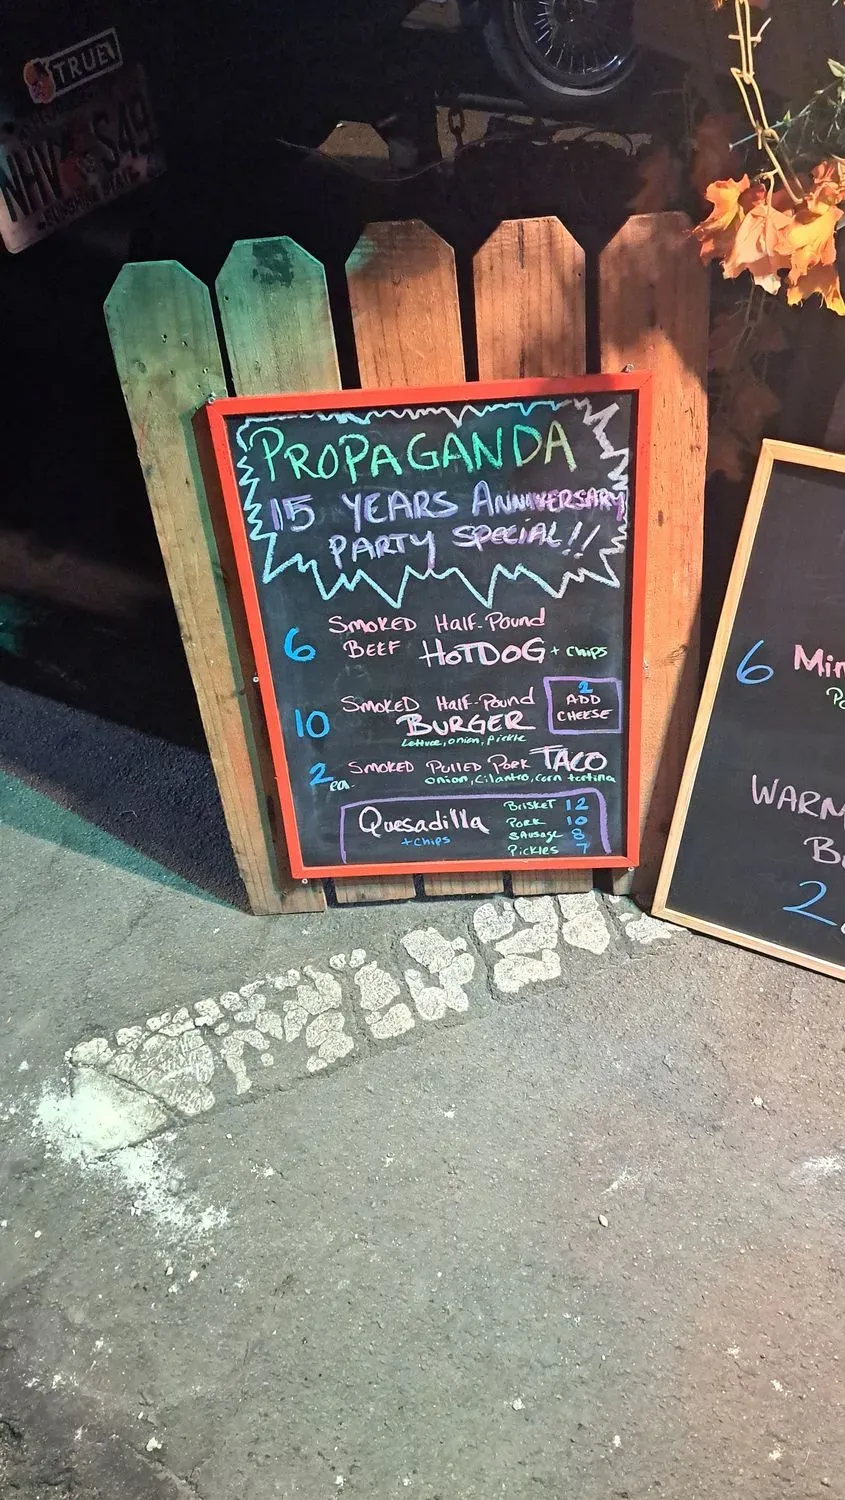 TRUE!
NHV S49
SUNSHINE STATE
PROPAGANDA
15 YEARS ANNIVERSARY
PARTY SPECIAL!!
6 SMOKED HALF-POUND
BEEF HOTDOG + CHIPS
10 SMOKED HALF-POUND
BURGER
Lettuce, onion, pickle
2
ADD
CHEESE
2 ea. SMOKED PULLED PORK TACO
onion, cilantro, corn tortina
Quesadilla
+ CHIPS
BRISKET 12
PORK 10
SAUSAGE 8
PICKLES 7
6
WARM
2